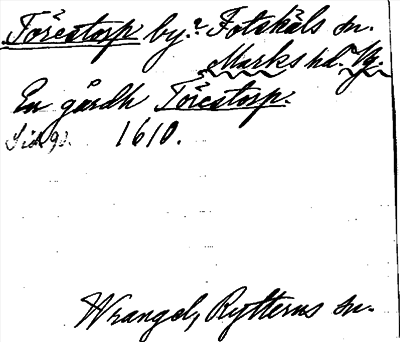 Torestorp by? Fotskäls sn.
Marks hd. Vg.
En gårdh Torestorp.
Sid 90. 1610.
Wrangel, Rytterns sn.